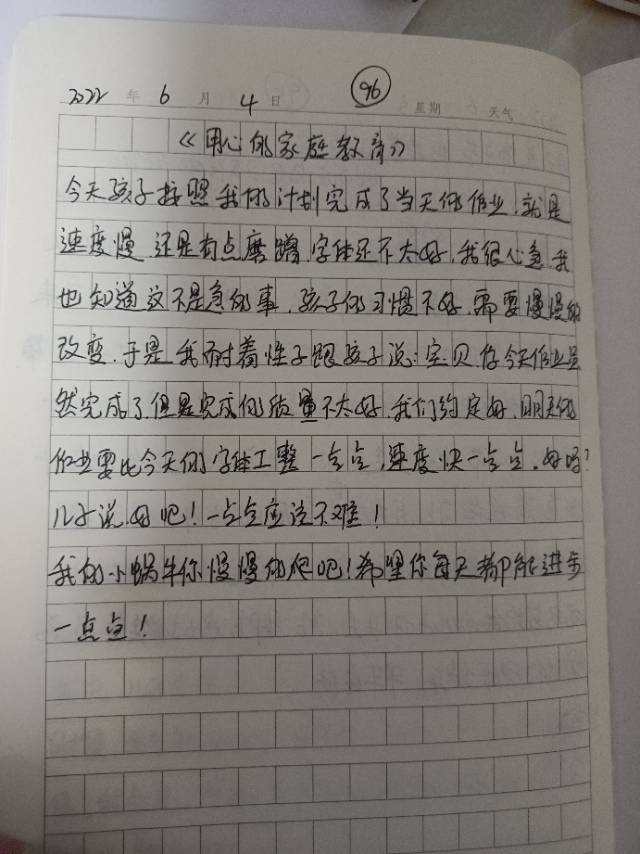 2022 年 6 月 4 日 96 星期 天气
《用心的家庭教育》
今天孩子按照我的计划完成了当天的作业，就是
速度慢，还是有点磨蹭，字体还不太好，我很心急，我
也知道这不是急的事，孩子的习惯不好，需要慢慢的
改变，于是我耐着性子跟孩子说：宝贝，你今天作业虽
然完成了，但是完成的质量不太好，我们约定好，明天的
作业要比今天的字体工整一点点，速度快一点点，好吗？
儿子说，好吧！一点点应该不难！
我的小蜗牛你慢慢的爬吧！希望你每天都能进步
一点点！